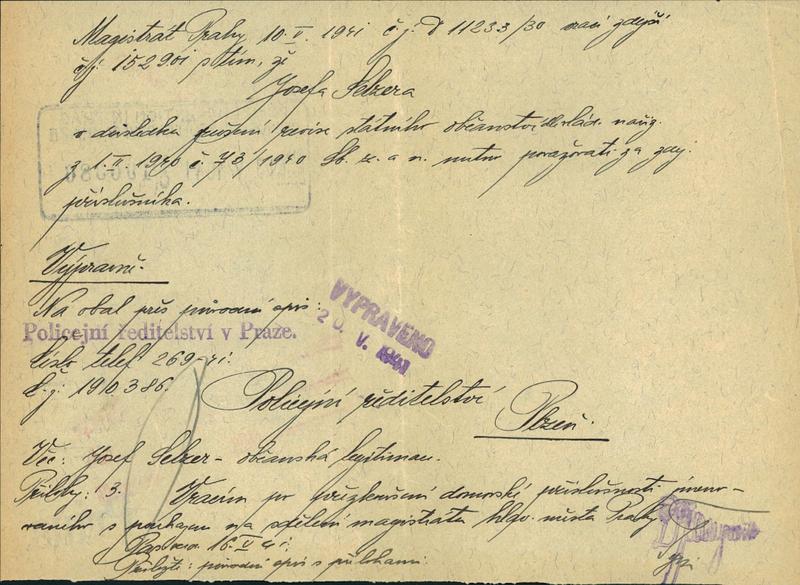 Magistrát Prahy 10.V.1941 č.j. D 11233/30 vrací zdejší
č.j. 152901 s tím, že
Josefa Selzera
v důsledku zrušení revise státního občanství dle vlád. nař.
z 1.II.1940 č. 73/1940 Sb. z. a n. nutno považovati za zdej.
příslušníka.
Výpravně.
Na obal přes původní opis:
VYPRAVENO
20. V. 1941
Policejní ředitelství v Praze.
Číslo telef. 269-41.
č.j. 1910386.
Policejní ředitelství
Plzeň.
Věc: Josef Selzer - občanská legitimace.
Přílohy: 3. Vracím po přezkoušení domovské příslušnosti jmeno-
vaného s poukazem na sdělení magistrátu hlav. města Prahy
16.V.41.
Přiložte: původní opis s přílohami.